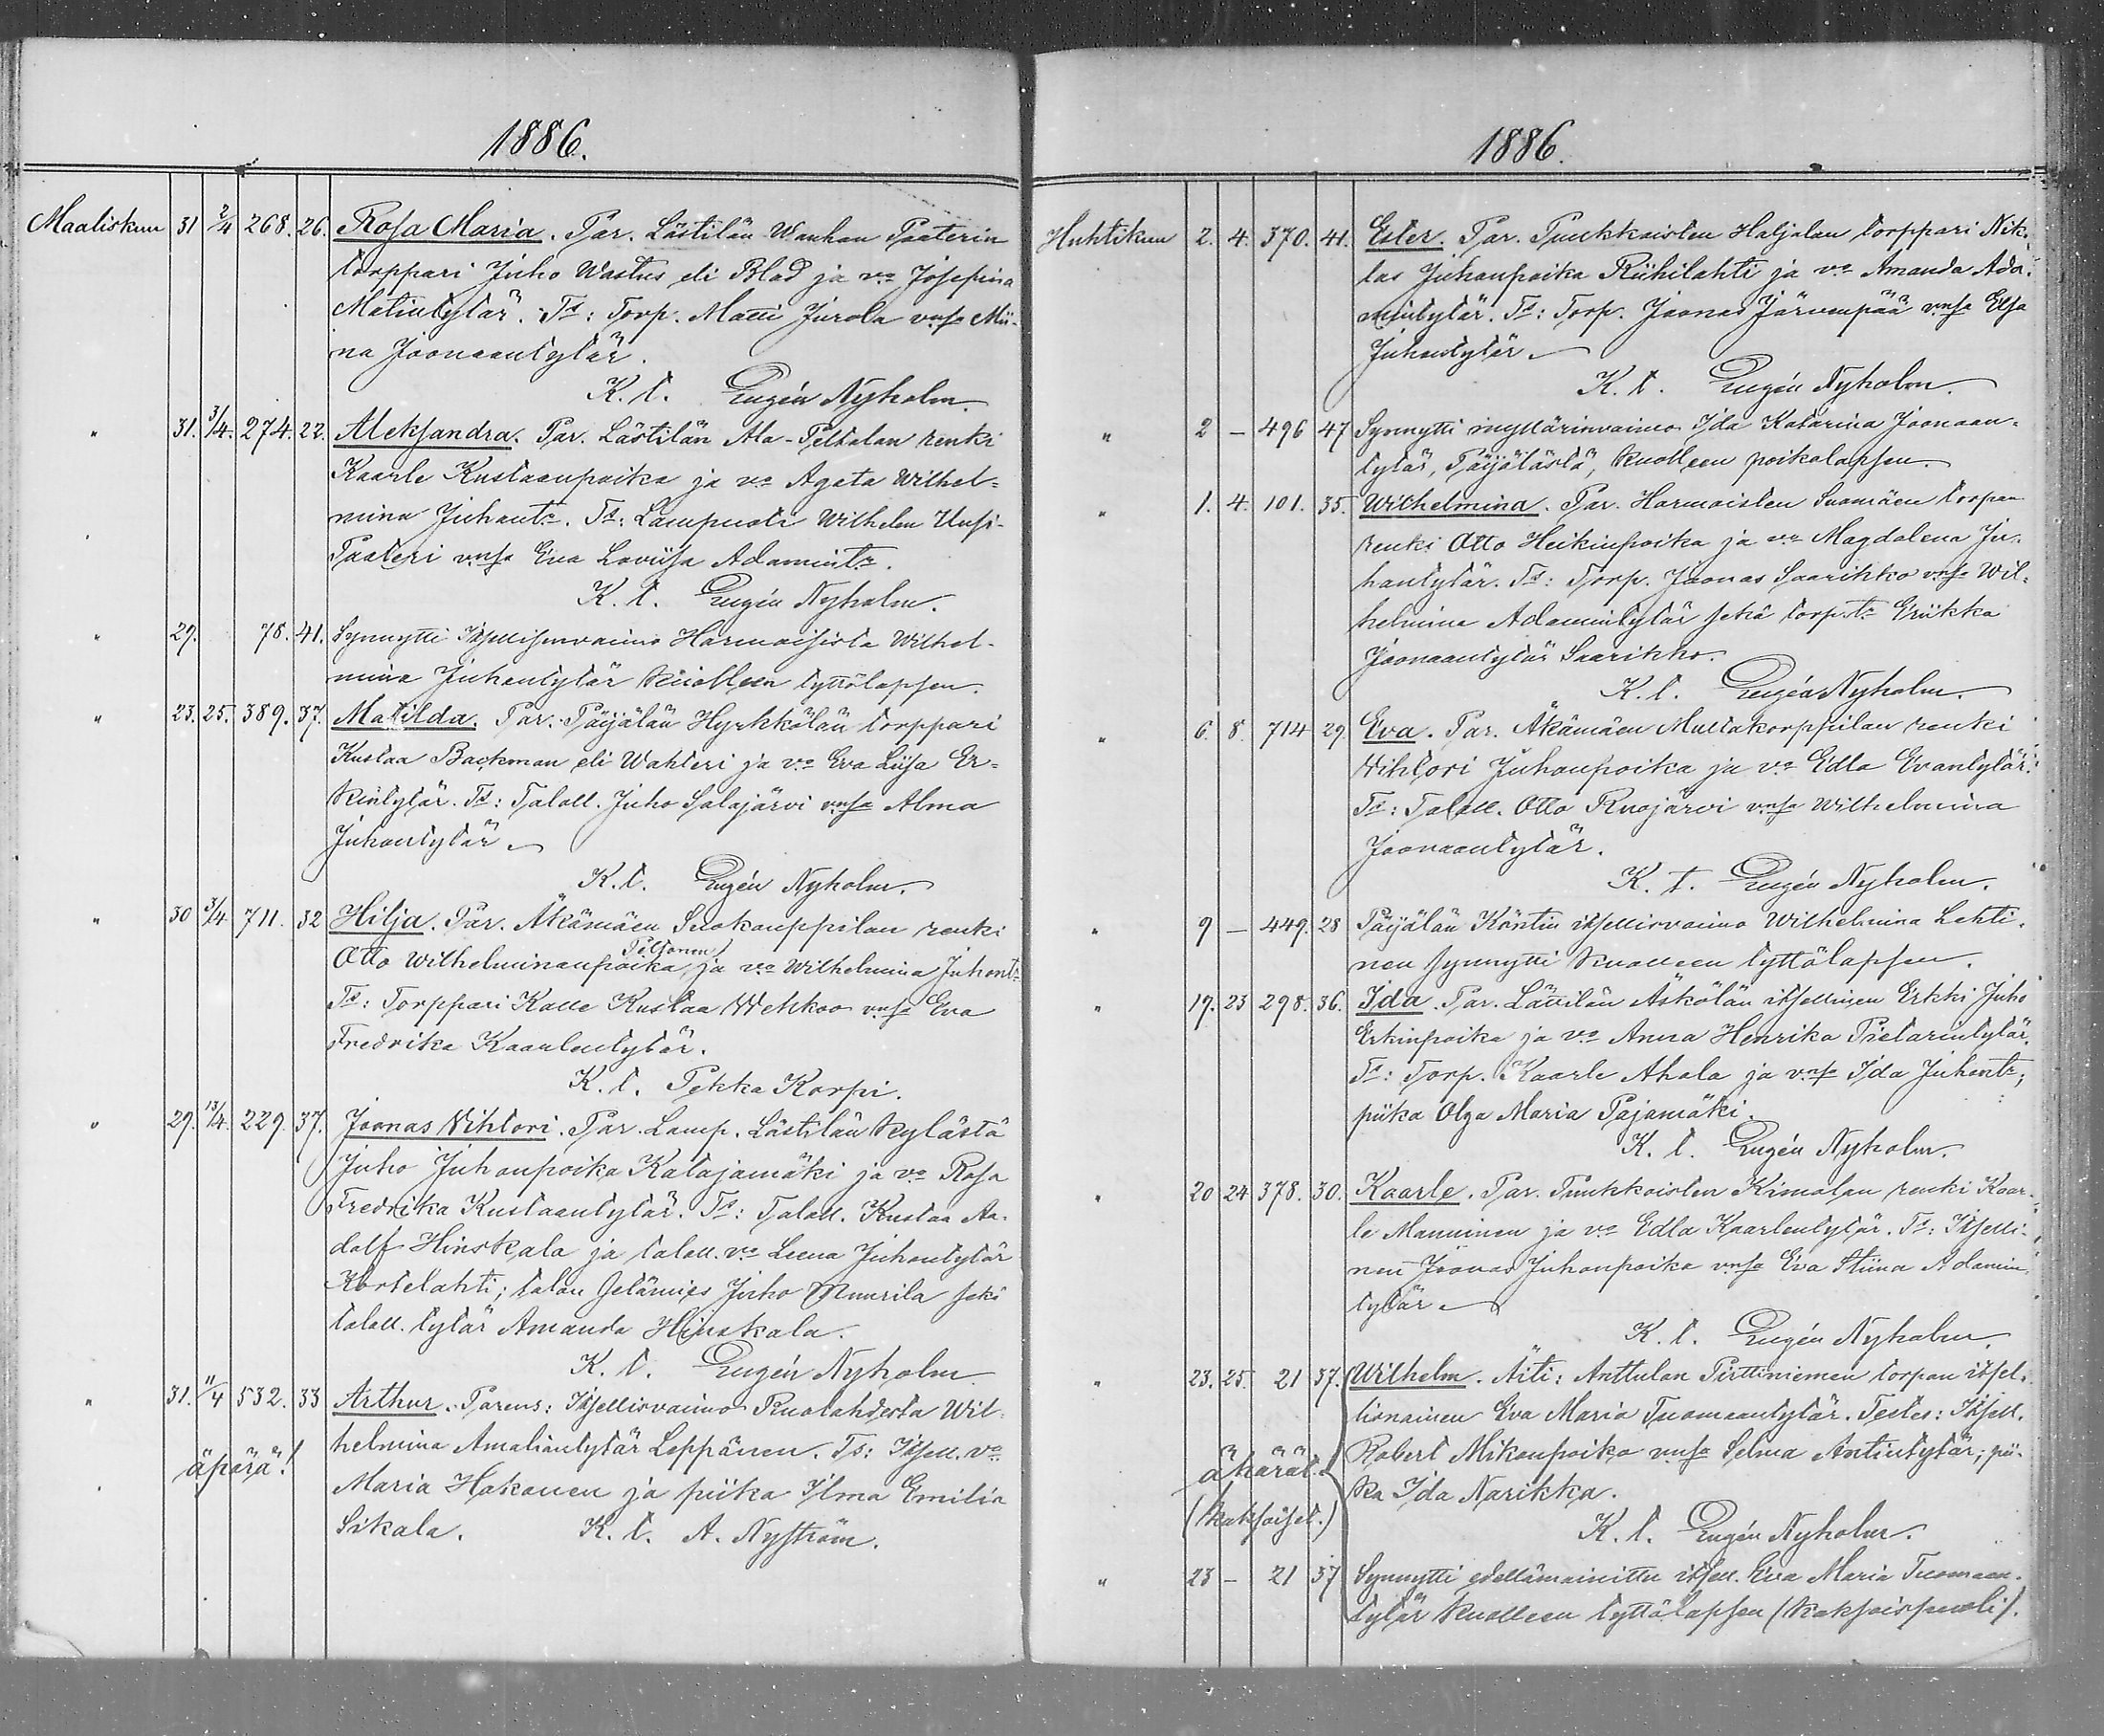 1886.
Maaliskuu 31 2/4 268. 26. Rosa Maria. Par. Lästilän Wanhan Paaterin
torppari Juho Wastus eli Blad ja vo Josepina
Matintytär. Ts: Torp. Matti Jurola vnsa Mii-
na Joonaantytär.
K. t. Eugén Nyholm.
" 31. 3/4. 274. 22. Aleksandra. Par. Lästilän Ala-Peltolan renki
Kaarle Kustaanpoika ja vo Agata Wilhel-
mina Juhantr. Ts: Lampuoti Wilhelm Uusi-
Paateri vnsa Eva Loviisa Adamintr.
K. t. Eugén Nyholm.
" 29. 78. 41. Synnytti Itsellisenvaimo Harmaisista Wilhel-
mina Juhantytär kuolleen tyttölapsen.
" 23. 25. 389. 37. Matilda. Par. Päijälän Hyrkkölän torppari
Kustaa Backman eli Wahteri ja vo Eva Liisa Er-
kintytär. Ts: Taloll. Juho Salajärvi vnsa Alma
Juhantytär
K. t. Eugén Nyholm.
" 30 3/4 711. 32 Hilja. Par. Äkämäen Suokauppilan renki
Otto Wilhelminanpoika Peltonen ja vo Wilhelmina Juhontr
Ts: Torppari Kalle Kustaa Wehkoo vnsa Eva
Fredrika Kaarlentytär.
K. t. Pekka Korpi.
" 29. 13/4. 229. 37. Joonas Vihtori. Par. Lamp. Lästilän kylästä
Juho Juhanpoika Katajamäki ja vo Rosa
Fredrika Kustaantytär. Ts: Taloll. Kustaa Aa-
dolf Hinskala ja taloll. vo Leena Juhantytär
Kortelahti; talon isännies Juho Muurila sekä
taloll. tytär Amanda Hinskala.
K. t. Eugén Nyholm
" 31. 11/4 532. 33 Arthur. Parens: Itsellisvaimo Ruolahdesta Wil-
helmina Amaliantytär Leppänen. Ts: Itsell. vo
äpärä!
Maria Hakanen ja piika Ilma Emilia
Sikala. K. t. A. Nyström.
1886.
Huhtikuu 2. 4. 370. 41. Ester. Par. Puukkoisten Haljalan torppari Nik-
las Juhanpoika Riihilahti ja vo Amanda Ada-
mintytär. Ts: Torp. Joonas Järvenpää vnsa Elsa
Juhantytär
K. t. Eugén Nyholm.
" 2 – 496 47 Synnytti myllärinvaimo Ida Katarina Joonaan-
tytär, Päijälästä, kuolleen poikalapsen.
" 1. 4. 101. 35. Wilhelmina. Par. Harmoisten Suomäen torpan
renki Otto Heikinpoika ja vo Magdalena Ju-
hantytär. Ts: Torp. Joonas Saarikko vnsa Wil-
helmina Adamintytär sekä torp. tr Eriikka
Joonaantytär Saarikko.
K. t. Eugén Nyholm.
" 6. 8. 714 29. Eva. Par. Äkämäen Mustakorppilan renki
Vihtori Juhanpoika ja vo Edla Evantytär.
Ts: Taloll. Otto Ruojärvi vnsa Wilhelmina
Joonaantytär.
K. t. Eugén Nyholm.
" 9 – 449. 28 Päijälän Köntin itsellisvaimo Wilhelmina Lehti-
nen synnytti kuolleen tyttölapsen.
" 19. 23 298. 36. Ida. Par. Lästilän Äskölän itsellinen Erkki Juho
Erkinpoika ja vo Anna Henrika Pietarintytär.
Ts: Torp. Kaarle Ahola ja vnsa Ida Juhontr;
piika Olga Maria Pajamäki.
K. t. Eugén Nyholm.
" 20 24 378. 30. Kaarle. Par. Puukkoisten Kimolan renki Kaar-
le Manninen ja vo Edla Kaarlentytär. Ts: Itselli-
nen Joonas Juhanpoika vnsa Eva Stiina Adamin-
tytär
K. t. Eugén Nyholm.
" 23. 25. 21 37. Wilhelm. Äiti: Anttulan Pirttiniemen torpan itsel-
lisnainen Eva Maria Tuomaantytär. Testes: Itsell.
äpärät.
Robert Mikonpoika vnsa Selma Antintytär; pii-
ka Ida Narikka.
(kaksoiset.)
K. t. Eugén Nyholm.
" 23 – 21 37 Synnytti edellämainittu itsell. Eva Maria Tuomaan-
tytär kuolleen tyttölapsen (kaksoispuoli).